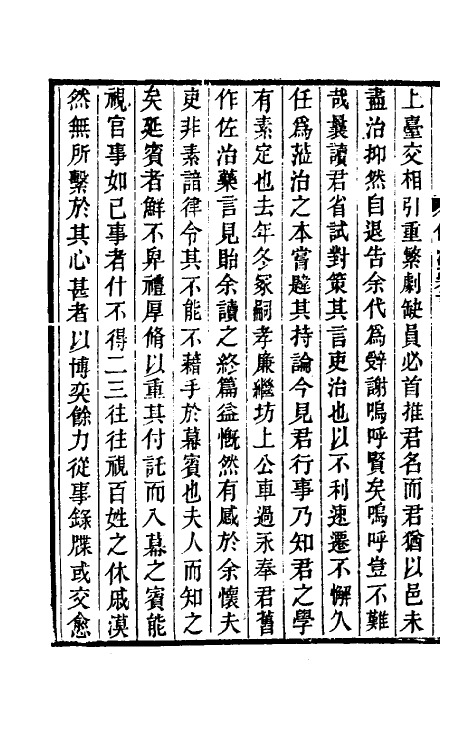 上臺交相引重繁劇缺員必首推君名而君猶以邑未
盡治抑然自退告余代爲辤謝嗚呼賢矣嗚呼豈不難
哉曩讀君省試對策其言吏治也以不利速遷不懈久
任爲蒞治之本嘗韙其持論今見君行事乃知君之學
有素定也去年冬冢嗣孝廉繼坊上公車過永奉君舊
作佐治藥言見貽余讀之終篇益慨然有感於余懷夫
吏非素諳律令其不能不藉手於幕賓也夫人而知之
矣延賓者鮮不畀禮厚脩以重其付託而入幕之賓能
視官事如已事者什不得二三往往視百姓之休戚漠
然無所繫於其心甚者以博奕餘力從事錄牒或交愈